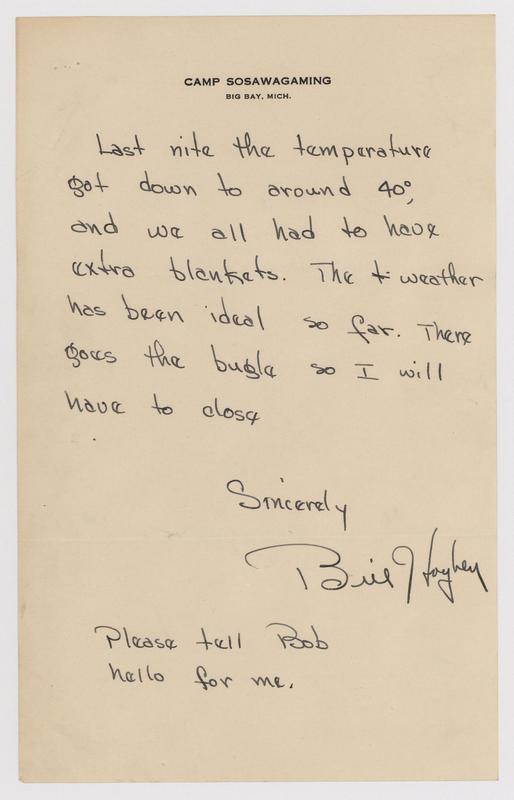 CAMP SOSAWAGAMING
BIG BAY, MICH.
Last nite the temperature
got down to around 40°,
and we all had to have
extra blankets. The t weather
has been ideal so far. There
goes the bugle so I will
have to close
.
Sincerely
Bill
Please tell Bob
hello for me.